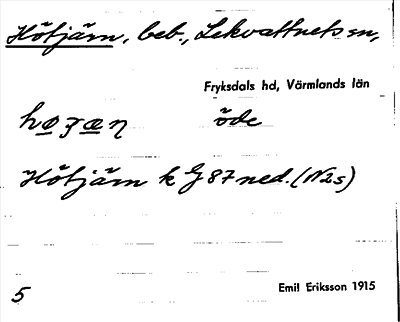 Hötjärn, beb., Lekvattnets sn,
Fryksdals hd, Värmlands län
öde
Hötjärn k G 87 ned. (N2s)
5
Emil Eriksson 1915